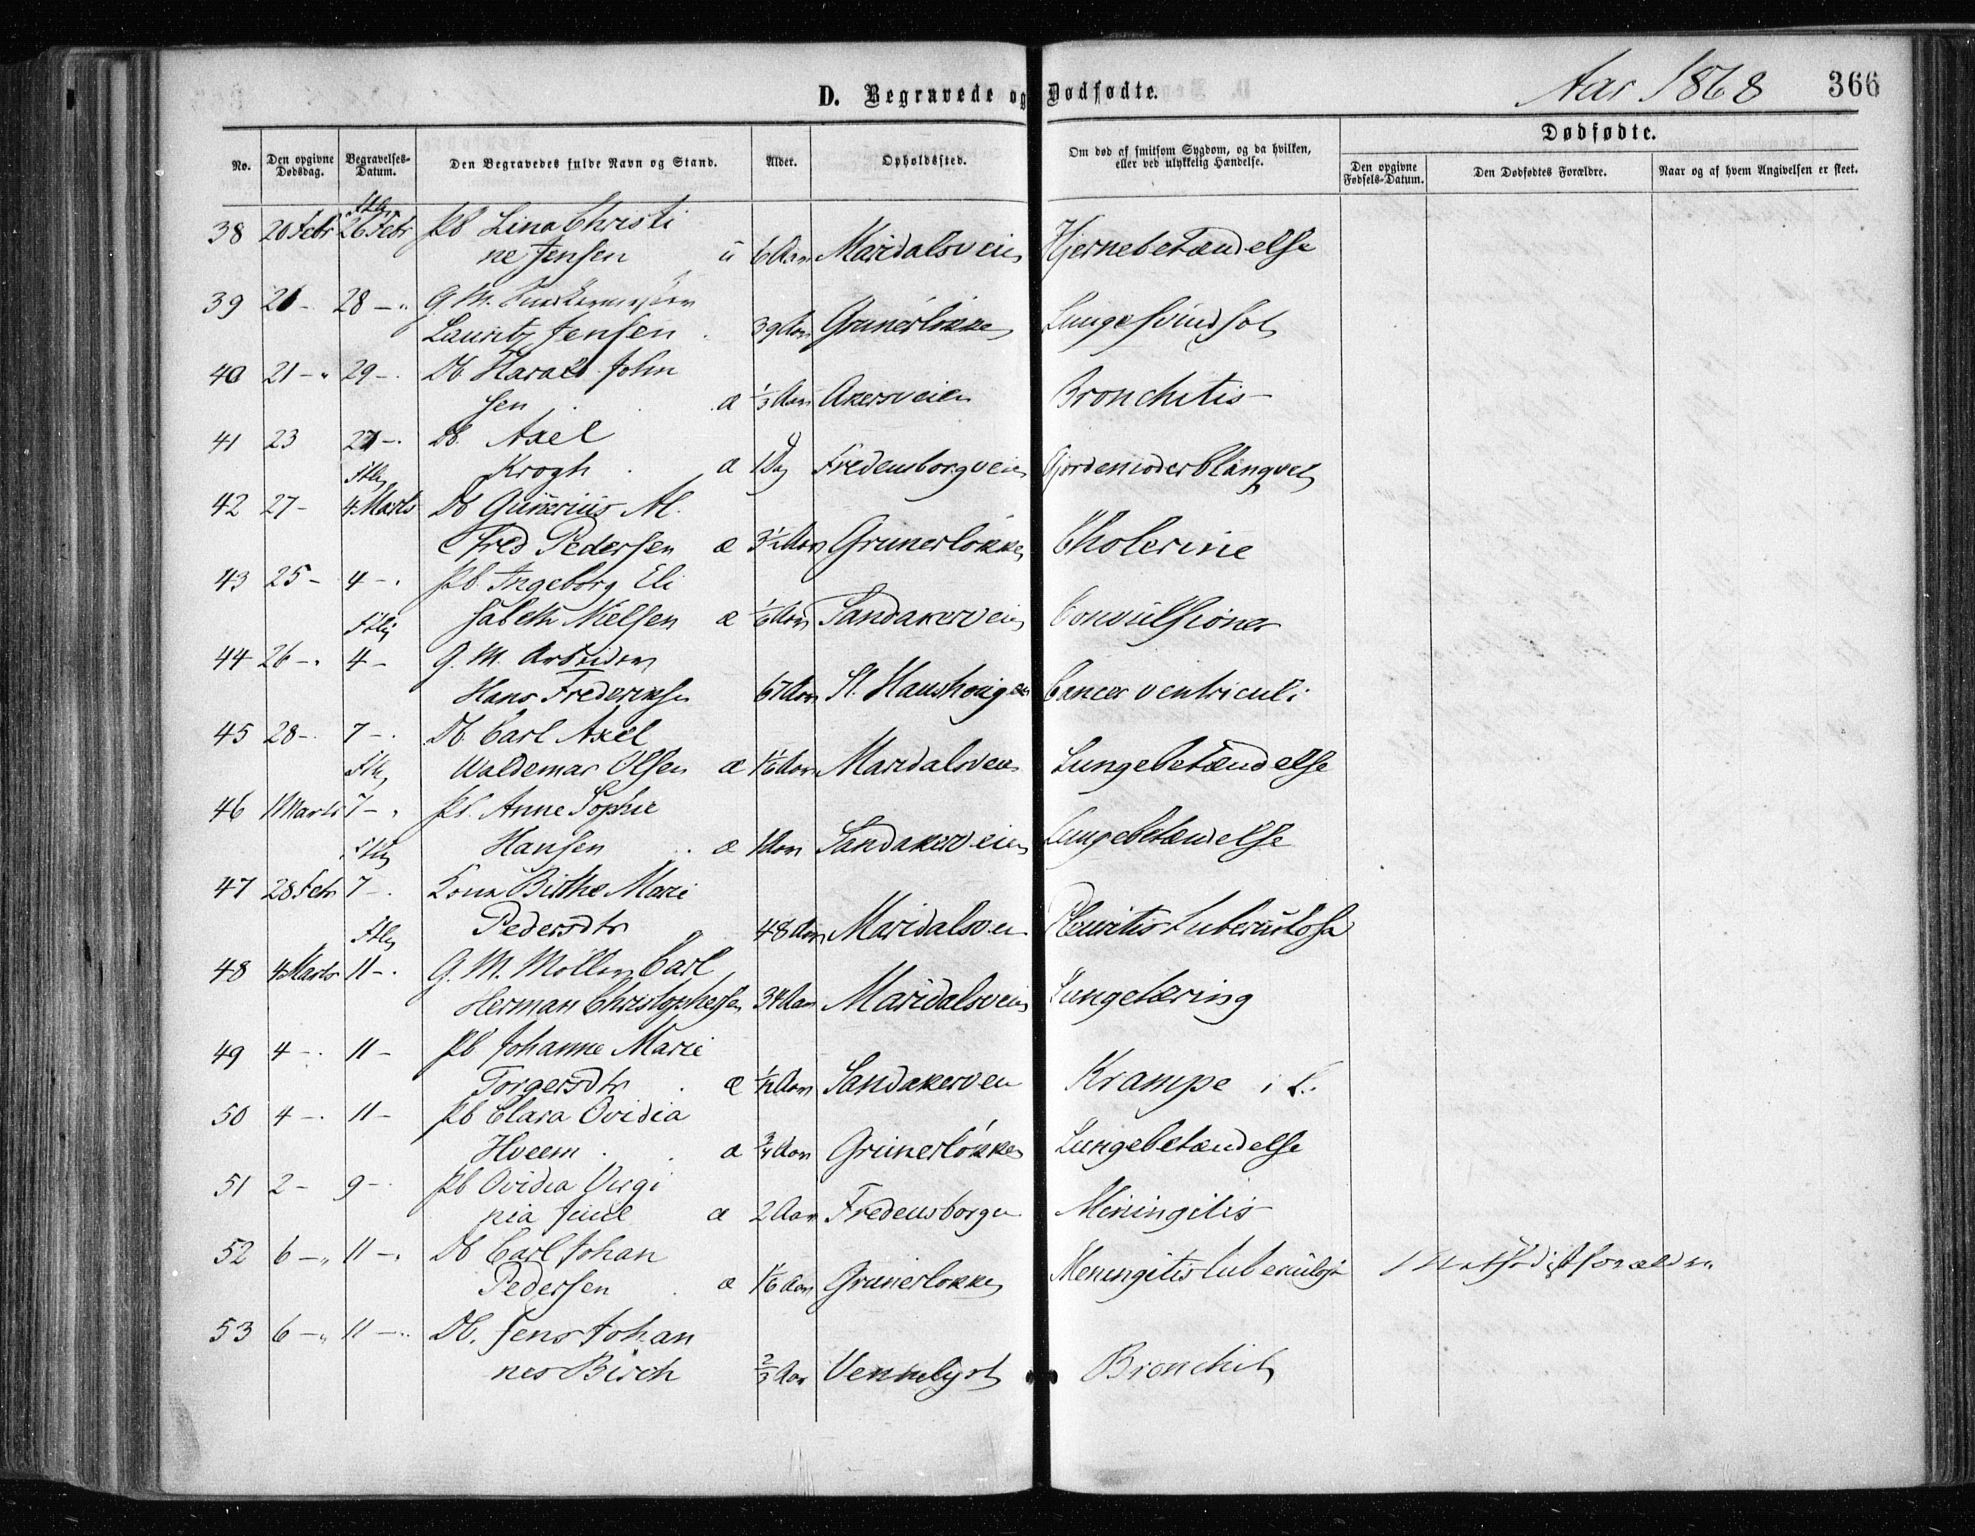 D. Begravede og Dødfødte.
Aar 1868
366
No.
Den opgivne Dødsdag.
Begravelses-Datum.
Den Begravedes fulde Navn og Stand.
Alder.
Opholdssted.
Om død af smitsom Sygdom, og da hvilken, eller ved ulykkelig Hændelse.
Dødfødte.
Den opgivne Fødsels-Datum.
Den Dødfødtes Forældre.
Naar og af hvem Angivelsen er skeet.
38 20 Febr 26 Febr Pb Lina Christi
ne Jensen 6 Aar Maridalsveien Hjernebetændelse
39 28 - G. M.
Lauritz Jensen 39 Aar Grunerløkken Lungesvindsot
40 21 - 29 - Db Harald John
sen æ 1/3 Aar Akersveien Bronchitis
41 23 Db. Axel
Krogh æ 1 Dag Fredensborgveien
42 27 - 4 Marts Db Gunerius Al
fred Pedersen æ 3 1/2 Aar Grunerløkken Cholerine
43 25 - 4 - Pb. Ingeborg Eli
sabeth Nielsen æ 1/6 Aar Sandakerveien Convulsioner
44 26 - 4 - G. M. Arbeider
Hans Frederiksen 67 Aar St. Hanshougen Cancer ventriculi
45 28 - 7 - Db. Carl Axel
Waldemar Olsen æ 1/6 Aar Maridalsveien Lungebetændelse
46 1 Marts 7 - Pb. Anne Sophie
Hansen æ 1 Aar Sandakerveien Lungebetændelse
47 28 Febr 7 - Kona Birthe Marie
Pedersdtr 48 Aar Maridalsveien Pleuritis tuberculosa
48 4 Marts 11 - G. M. Møller Carl
Herman Christophersen 34 Aar Maridalsveien Lungetæring
49 4 - 11 - Pb Johanne Marie
Torgersdtr æ 1/12 Aar Sandakerveien Krampe i L.
50 4 - 11 - Pb Clara Ovidia
Hveem æ 3/4 Aar Grünerløkken Lungebetændelse
51 2 - 9 - Pb Ovidia Virgi
nia Juul æ 2 Aar Fredensborgv Meningitis
52 6 - 11 - Db Carl Johan
Pedersen æ 1/6 Aar Grunerløkken Meningitis tuberculosa Methodistforældre
53 6 - 11 - Db. Jens Johan
nes Birch 2/3 Aar Vennelyst Bronchit